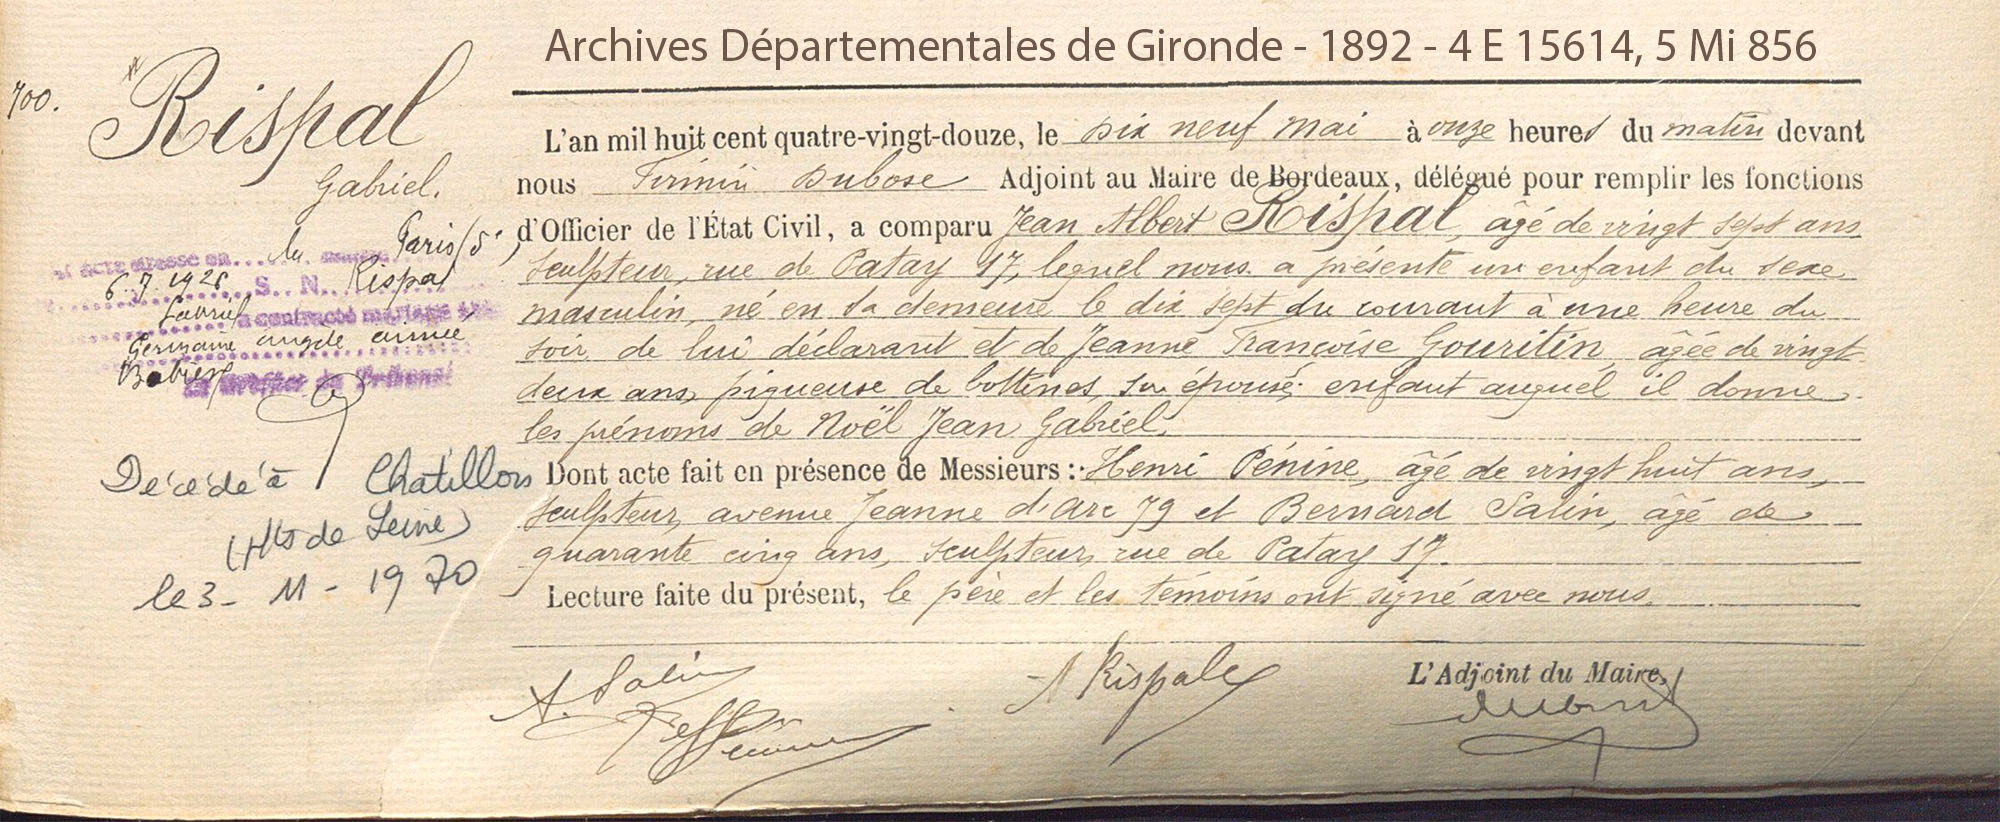 Archives Départementales de Gironde - 1892 - 4 E 15614, 5 Mi 856
700.
Rispal
Gabriel.
L'an mil huit cent quatre-vingt-douze, le dix neuf mai à onze heures du matin devant
nous Firmin Dubosc Adjoint au Maire de Bordeaux, délégué pour remplir les fonctions
d'Officier de l'État Civil, a comparu Jean Albert Rispal, âgé de vingt sept ans
sculpteur, rue de Patay 17, lequel nous a présenté un enfant du sexe
masculin, né en sa demeure le dix sept du courant à une heure du
soir, de lui déclarant et de Jeanne Françoise Gouritin, âgée de vingt
deux ans, piqueuse de bottines, son épouse; enfant auquel il donne
les prénoms de Noël Jean Gabriel.
Dont acte fait en présence de Messieurs : Henri Pénine, âgé de vingt huit ans,
sculpteur, avenue Jeanne d'Arc 79 et Bernard Salin, âgé de
quarante cinq ans, sculpteur, rue de Patay 17.
Lecture faite du présent, le père et les témoins ont signé avec nous.
Paris (5e)
S. N.
Rispal
6.7.1926
Gabriel a contracté mariage
Germaine angèle aimée
Le Greffier du Tribunal
Décédé à Chatillon
(Hts de Seine)
le 3 - 11 - 1970
A. Salin
A Rispal
L'Adjoint du Maire,
Dubosc